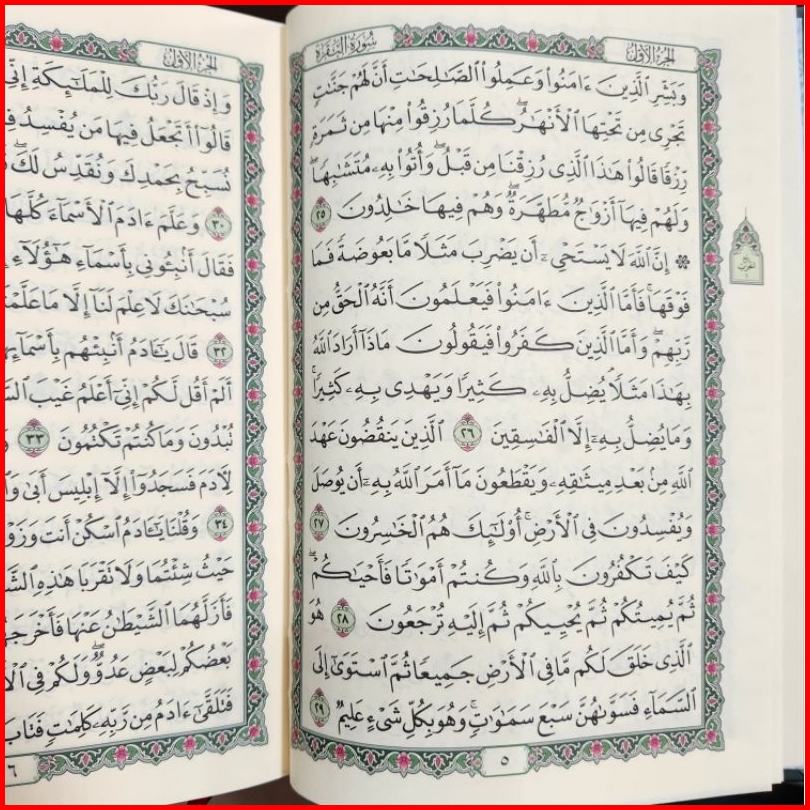 الجزء الأول
سورة البقرة
وَبَشِّرِ ٱلَّذِينَ ءَامَنُوا۟ وَعَمِلُوا۟ ٱلصَّٰلِحَٰتِ أَنَّ لَهُمْ جَنَّٰتٍ
تَجْرِى مِن تَحْتِهَا ٱلْأَنْهَٰرُ ۖ كُلَّمَا رُزِقُوا۟ مِنْهَا مِن ثَمَرَةٍ
رِّزْقًا قَالُوا۟ هَٰذَا ٱلَّذِى رُزِقْنَا مِن قَبْلُ ۖ وَأُتُوا۟ بِهِۦ مُتَشَٰبِهًا ۖ
وَلَهُمْ فِيهَآ أَزْوَٰجٌ مُّطَهَّرَةٌ ۖ وَهُمْ فِيهَا خَٰلِدُونَ ٢٥
۞ إِنَّ ٱللَّهَ لَا يَسْتَحْىِۦٓ أَن يَضْرِبَ مَثَلًا مَّا بَعُوضَةً فَمَا
فَوْقَهَا ۚ فَأَمَّا ٱلَّذِينَ ءَامَنُوا۟ فَيَعْلَمُونَ أَنَّهُ ٱلْحَقُّ مِن
رَّبِّهِمْ ۖ وَأَمَّا ٱلَّذِينَ كَفَرُوا۟ فَيَقُولُونَ مَاذَآ أَرَادَ ٱللَّهُ
بِهَٰذَا مَثَلًا ۘ يُضِلُّ بِهِۦ كَثِيرًا وَيَهْدِى بِهِۦ كَثِيرًا ۚ
وَمَا يُضِلُّ بِهِۦٓ إِلَّا ٱلْفَٰسِقِينَ ٢٦ ٱلَّذِينَ يَنقُضُونَ عَهْدَ
ٱللَّهِ مِنۢ بَعْدِ مِيثَٰقِهِۦ وَيَقْطَعُونَ مَآ أَمَرَ ٱللَّهُ بِهِۦٓ أَن يُوصَلَ
وَيُفْسِدُونَ فِى ٱلْأَرْضِ ۚ أُو۟لَٰٓئِكَ هُمُ ٱلْخَٰسِرُونَ ٢٧
كَيْفَ تَكْفُرُونَ بِٱللَّهِ وَكُنتُمْ أَمْوَٰتًا فَأَحْيَٰكُمْ ۖ
ثُمَّ يُمِيتُكُمْ ثُمَّ يُحْيِيكُمْ ثُمَّ إِلَيْهِ تُرْجَعُونَ ٢٨ هُوَ
ٱلَّذِى خَلَقَ لَكُم مَّا فِى ٱلْأَرْضِ جَمِيعًا ثُمَّ ٱسْتَوَىٰٓ إِلَى
ٱلسَّمَآءِ فَسَوَّىٰهُنَّ سَبْعَ سَمَٰوَٰتٍ ۚ وَهُوَ بِكُلِّ شَىْءٍ عَلِيمٌ ٢٩
٥
الجزء الأول
وَإِذْ قَالَ رَبُّكَ لِلْمَلَٰٓئِكَةِ إِنِّى
قَالُوٓا۟ أَتَجْعَلُ فِيهَا مَن يُفْسِدُ
نُسَبِّحُ بِحَمْدِكَ وَنُقَدِّسُ لَكَ ۖ
٣٠ وَعَلَّمَ ءَادَمَ ٱلْأَسْمَآءَ كُلَّهَا
فَقَالَ أَنۢبِـُٔونِى بِأَسْمَآءِ هَٰٓؤُلَآءِ
سُبْحَٰنَكَ لَا عِلْمَ لَنَآ إِلَّا مَا عَلَّمْتَنَا
٣٢ قَالَ يَٰٓـَٔادَمُ أَنۢبِئْهُم بِأَسْمَآئِهِمْ
أَلَمْ أَقُل لَّكُمْ إِنِّىٓ أَعْلَمُ غَيْبَ
تُبْدُونَ وَمَا كُنتُمْ تَكْتُمُونَ ٣٣
لِـَٔادَمَ فَسَجَدُوٓا۟ إِلَّآ إِبْلِيسَ أَبَىٰ
٣٤ وَقُلْنَا يَٰٓـَٔادَمُ ٱسْكُنْ أَنتَ
حَيْثُ شِئْتُمَا وَلَا تَقْرَبَا هَٰذِهِ
فَأَزَلَّهُمَا ٱلشَّيْطَٰنُ عَنْهَا
بَعْضُكُمْ لِبَعْضٍ عَدُوٌّ ۖ وَلَكُمْ فِى
فَتَلَقَّىٰٓ ءَادَمُ مِن رَّبِّهِۦ كَلِمَٰتٍ فَتَابَ
٦